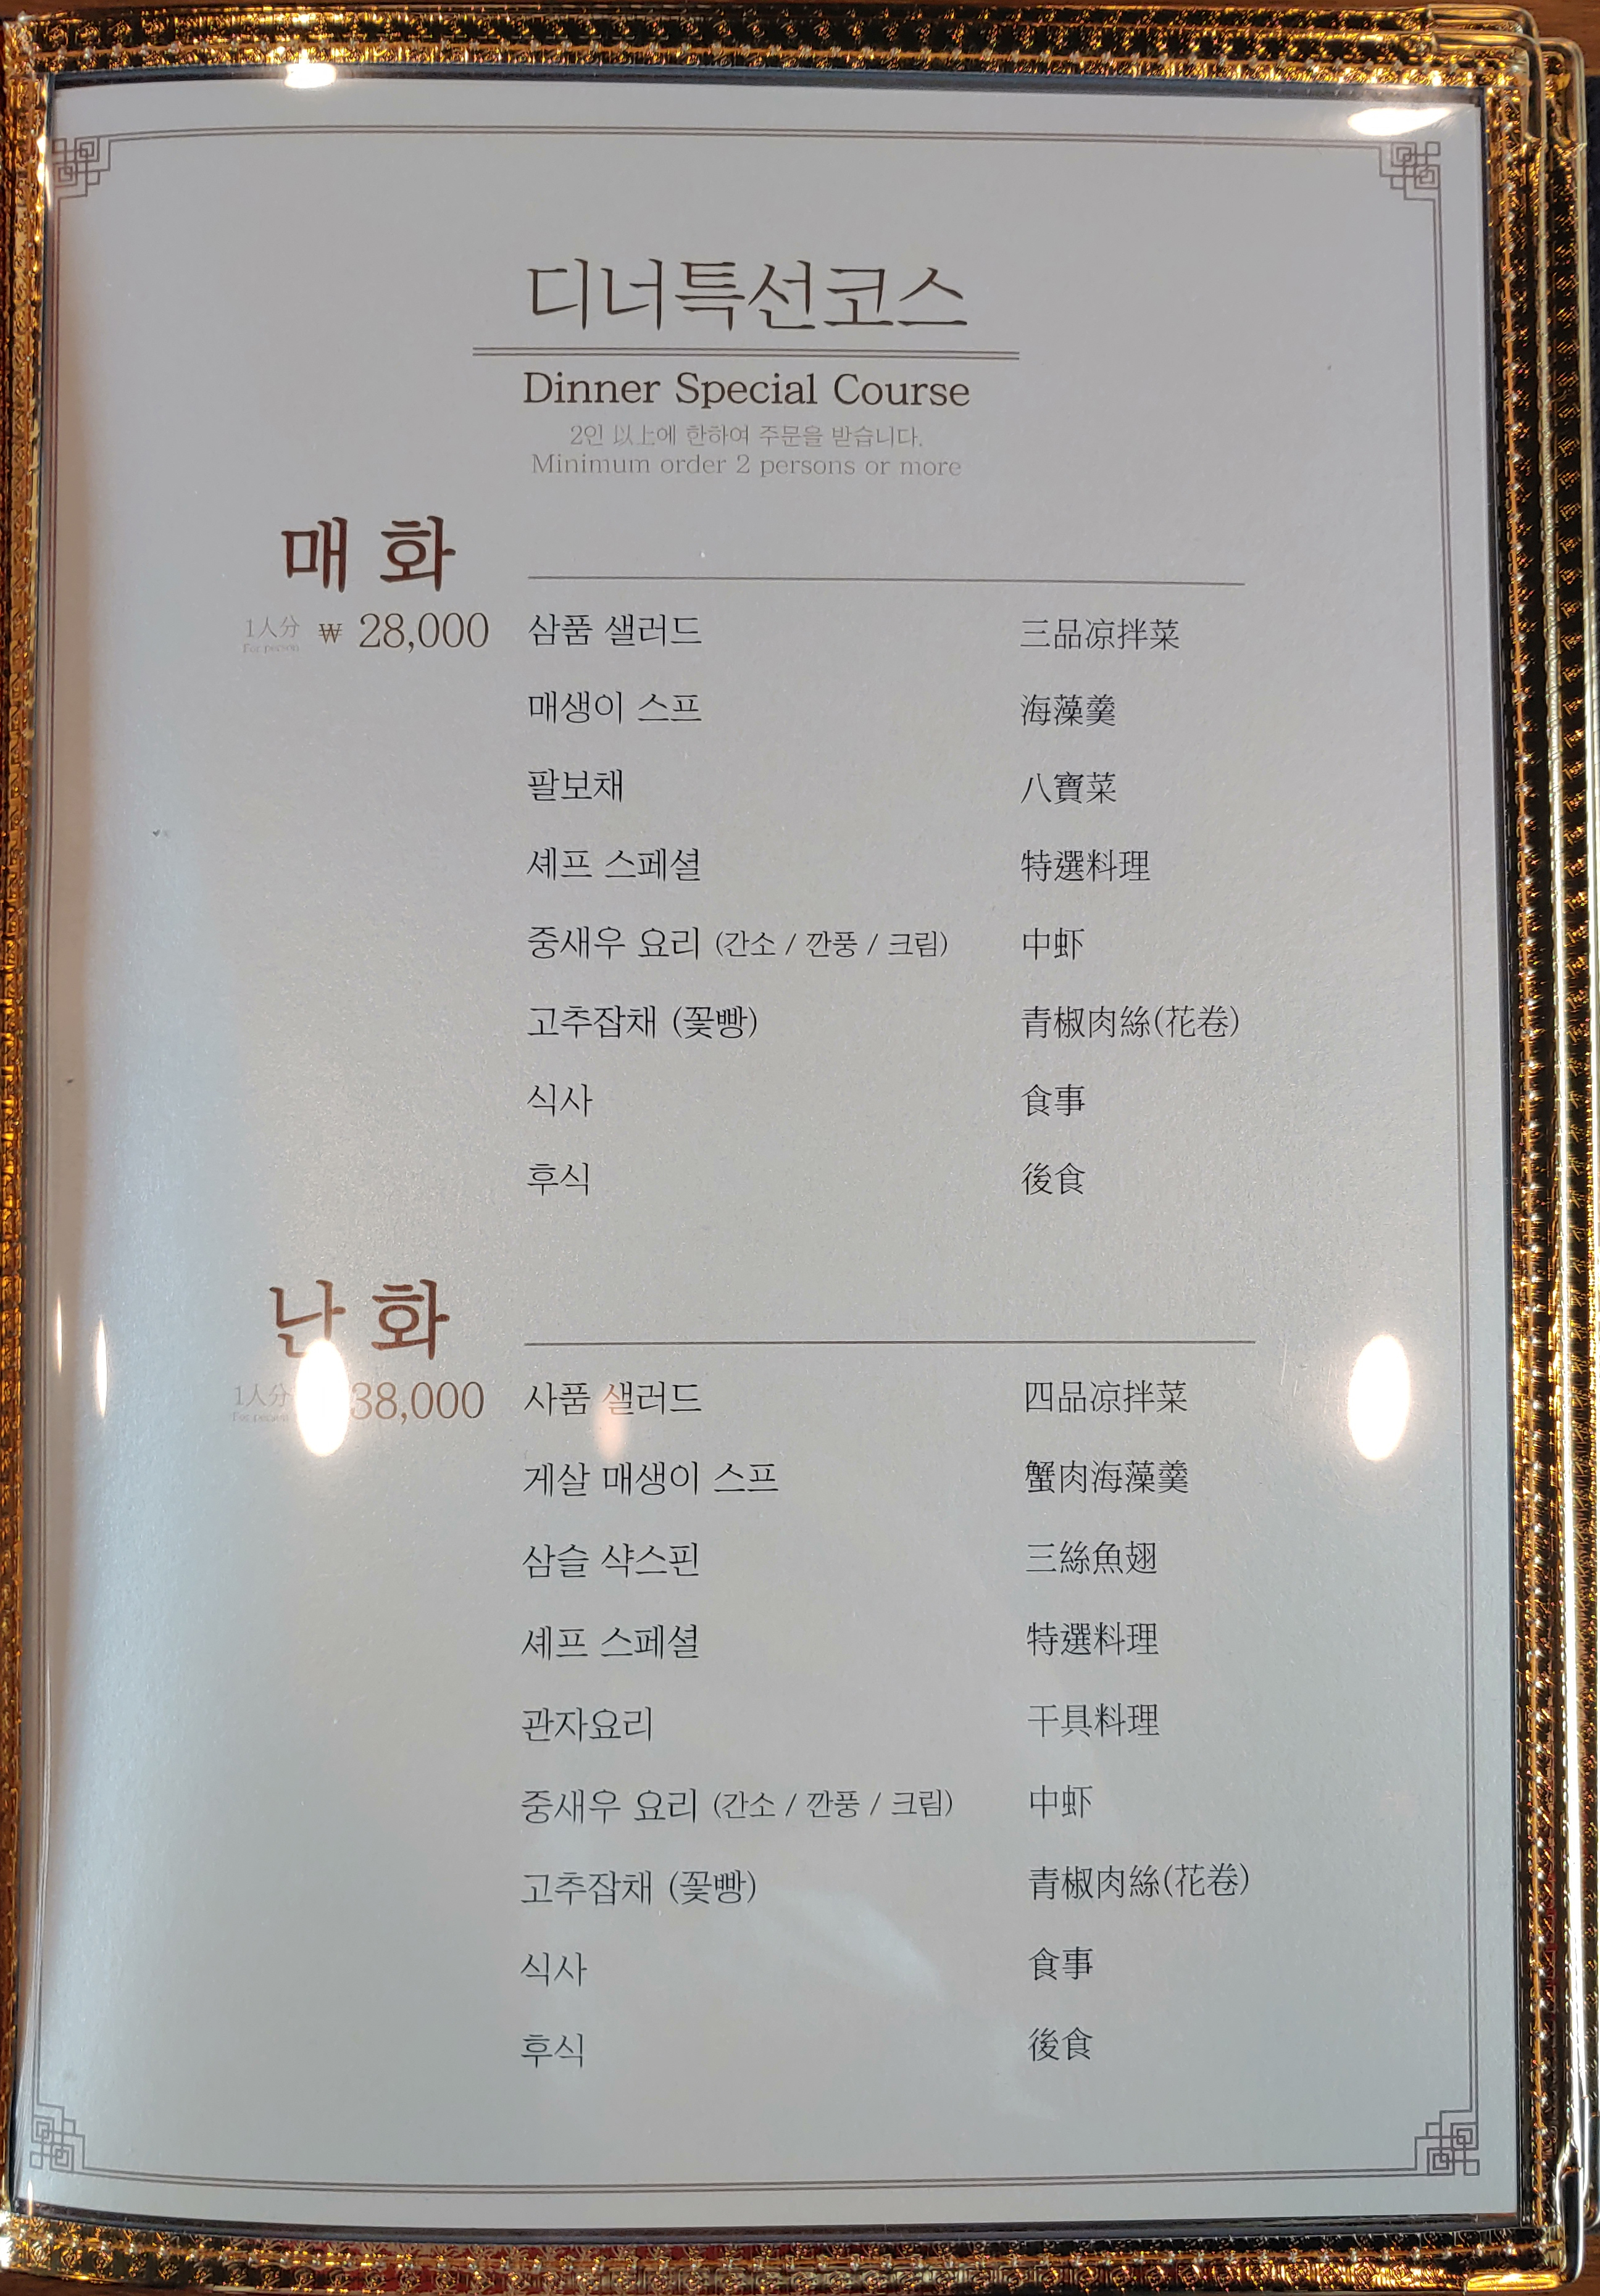 디너특선코스
Dinner Special Course
2인 以上에 한하여 주문을 받습니다.
Minimum order 2 persons or more
매 화
1人分 ₩ 28,000
For person
삼품 샐러드 三品凉拌菜
매생이 스프 海藻羹
팔보채 八寶菜
셰프 스페셜 特選料理
중새우 요리 (간소 / 깐풍 / 크림) 中虾
고추잡채 (꽃빵) 青椒肉絲(花卷)
식사 食事
후식 後食
난 화
1人分 38,000
For person
사품 샐러드 四品凉拌菜
게살 매생이 스프 蟹肉海藻羹
삼슬 샥스핀 三絲魚翅
셰프 스페셜 特選料理
관자요리 干具料理
중새우 요리 (간소 / 깐풍 / 크림) 中虾
고추잡채 (꽃빵) 青椒肉絲(花卷)
식사 食事
후식 後食